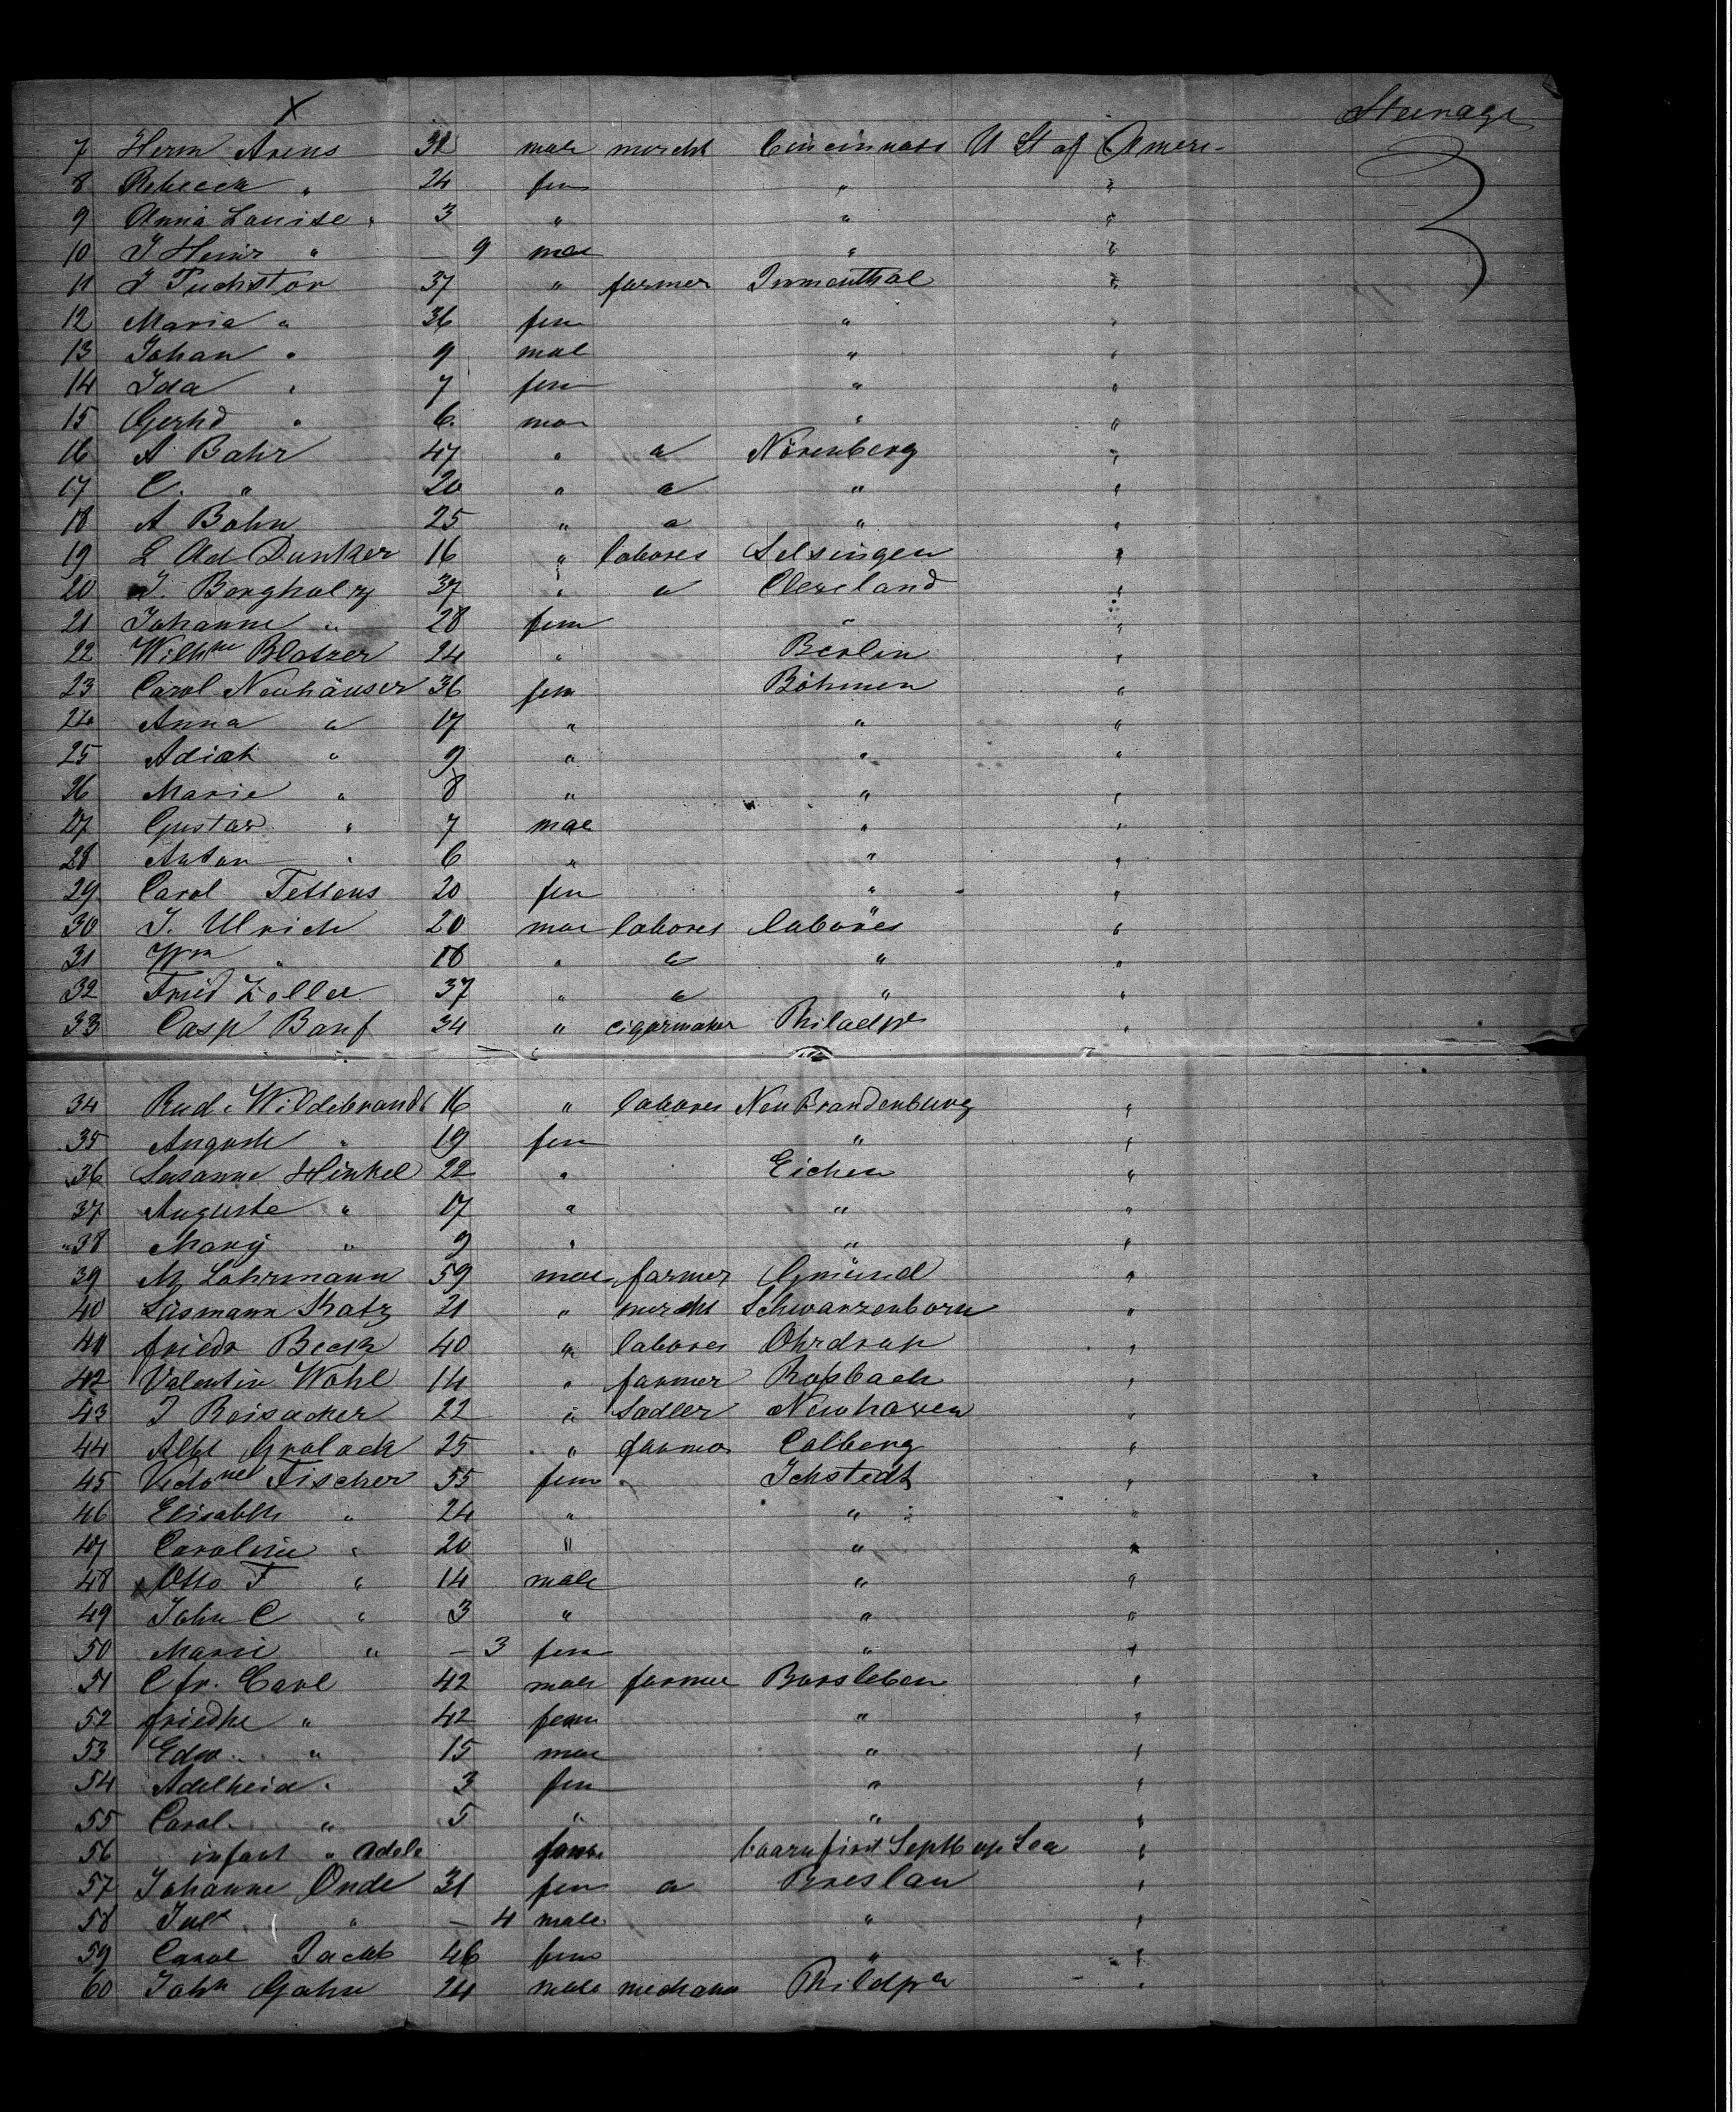 Steerage
X
3
7 Herm Arens 32 male mercht Cincinnati U St of Ameri-
8 Rebecca " 24 fem " "
9 Anna Louise " 3 " " "
10 J Heinr " — 9 mal " "
11 J Fuchstor 37 " farmer Immenthal "
12 Maria " 36 fem " "
13 Johan " 9 mal " "
14 Ida " 7 fem " "
15 Gerhd " 6 mal " "
16 A Bahr 47 " " Nörenberg "
17 C. " 20 " " " "
18 A Bahn 25 " " " "
19 L Ad Dunker 16 " labores Selsingen "
20 J. Bergholz 37 " " Cleveland "
21 Johanne " 28 fem " "
22 Wilhne Blatzer 24 " Berlin "
23 Carol Neuhäuser 36 fem Böhmen "
24 Anna " 17 " " "
25 " 9 " " "
26 Marie " 8 " " "
27 Gustav " 7 male " "
28 Anton " 6 " " "
29 Carol Tettens 20 fem " "
30 J. Ulrich 20 male labores labores "
31 Wm " 18 " " " "
32 Fried Zeller 37 " " " "
33 Casp Banf 34 " cigarmaker Philadpa "
34 Rud. Wildebrandt 16 " labores Neu Brandenburg "
35 Auguste " 19 fem " "
36 Susanne Hinkel 22 " Eichen "
37 Auguste " 17 " " "
38 Mary " 9 " " "
39 M Lohrmann 59 male farmer Gmünd "
40 Süsmann Katz 21 " mercht Schwarzenborn "
41 friedr Beck 40 " labores Ohrdrup "
42 Valentin Wahl 14 " farmer Rosbach "
43 J Reisacker 22 " Sadler Newhaven "
44 Albt Grolack 25 " farmer Colberg "
45 Fischer 55 fem " Ichstedt "
46 Elisabeth " 24 " " "
47 Caroline " 20 " " "
48 Otto F " 14 male " "
49 John C " 3 " " "
50 Marie " — 3 fem " "
51 C fr. Carl 42 male farmer Barsleben "
52 friedke " 42 fem " "
53 Edw. " 15 male " "
54 Adelheid " 3 fem " "
55 Carol. " 5 " " "
56 infant " Adele fem boarn first Septb up Sea "
57 Johanne Onde 31 fem " Breslau "
58 Jul " — 4 male " "
59 Carol Jacob 46 fem " "
60 John Gahn 24 male mechanic Phildpa "